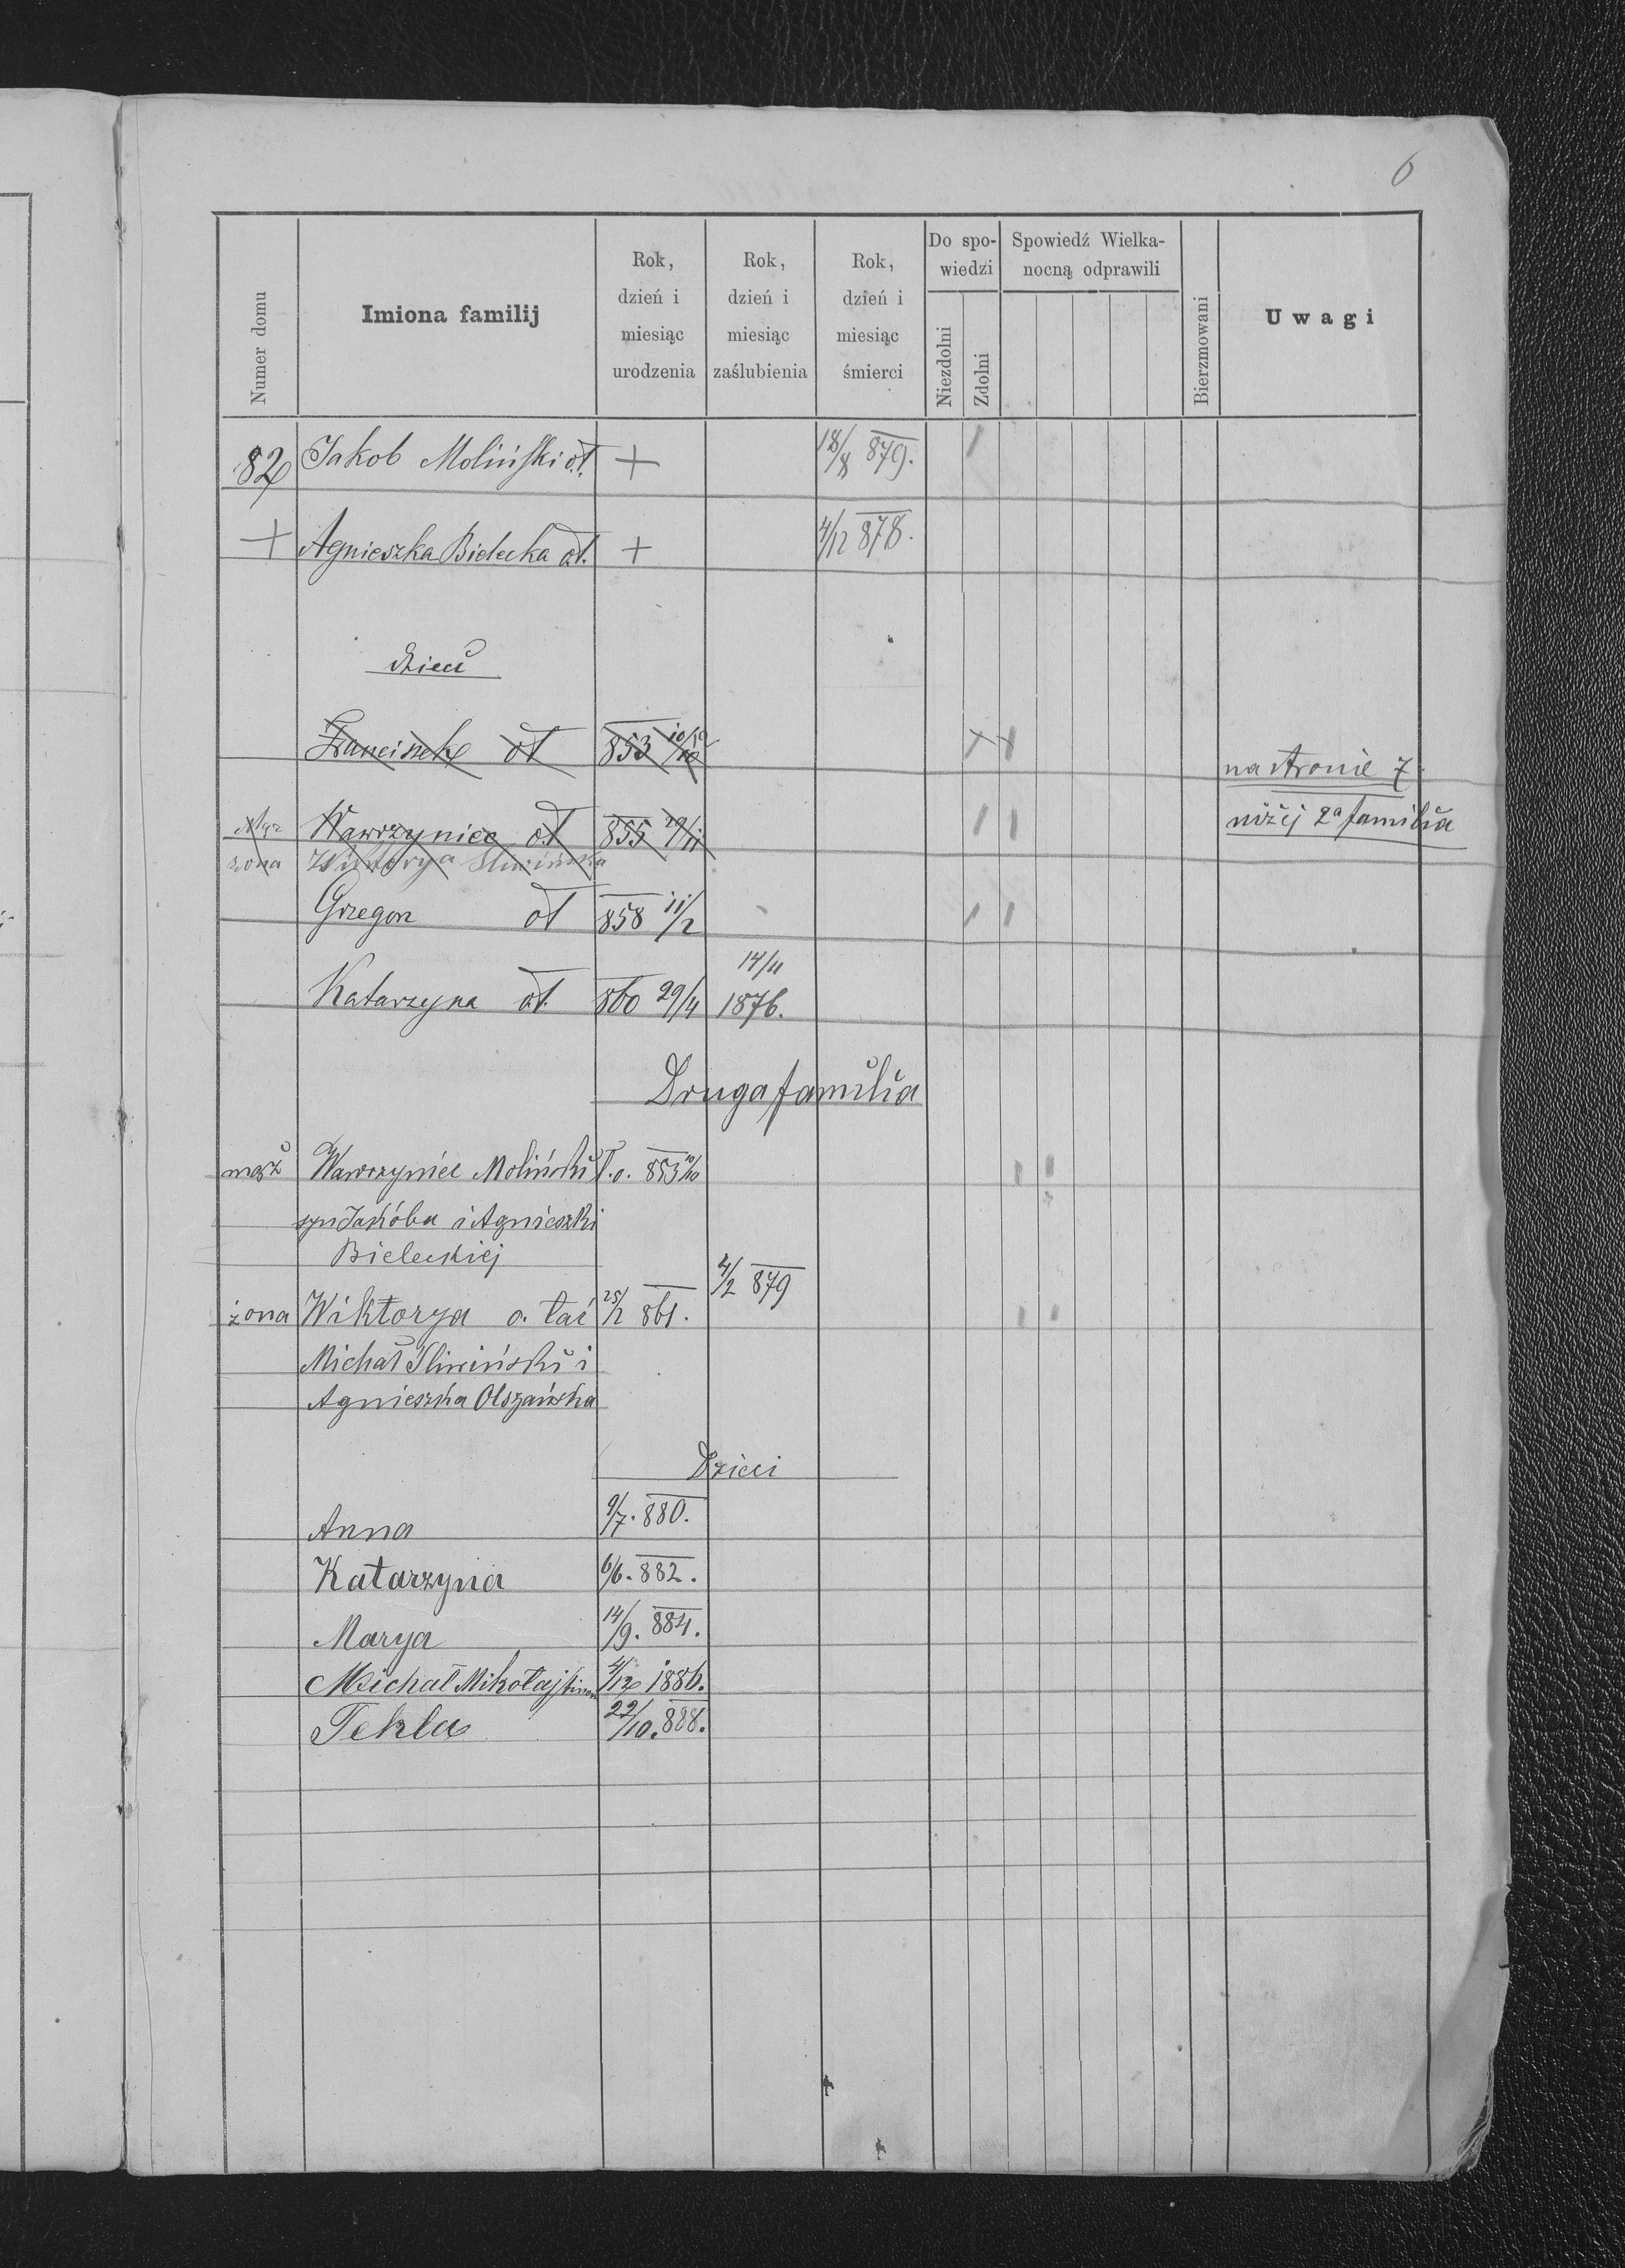 6
Numer domu
Imiona familij
Rok, dzień i miesiąc urodzenia
Rok, dzień i miesiąc zaślubienia
Rok, dzień i miesiąc śmierci
Do spowiedzi
Niezdolni
Zdolni
Spowiedź Wielkanocną odprawili
Bierzmowani
Uwagi
82 Jakob Moliński ot. + 18/8 879.
+ Agnieszka Bielecka ot. + 4/12 878.
dzieci
Franciszek ot 853
na stronie 7.
Wawrzyniec ot 855 29/11
niżej 2a familia
żona Wiktorya Sliwińska
Grzegorz ot 858 11/2
Katarzyna ot. 860 29/4 14/11 1876.
Druga familia
mąż Wawrzyniec Moliński T.o. 853 10/10
syn Jakóba i Agnieszki
Bieleckiej
4/2 879
żona Wiktorya o. łać 861.
Michał Śliwiński i
Agnieszka Olszańska
Dzieci
Anna 9/7. 880.
Katarzyna 6/6. 882.
Marya 14/9. 884.
Michał Mikołaj 4/12 1886.
Tekla 22/10. 888.